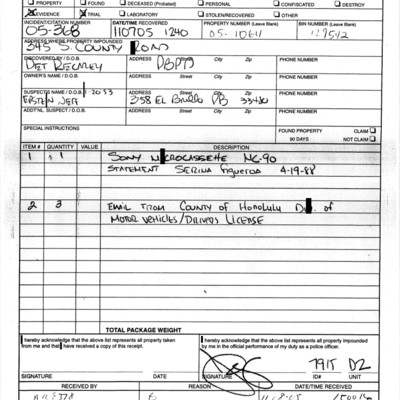 PROPERTY FOUND DECEASED (Printed) PERSONAL CONFISCATED DESTROY
EVIDENCE TRIAL LABORATORY STOLEN/RECOVERED OTHER
INCIDENT/CITATION NUMBER DATE/TIME RECOVERED PROPERTY NUMBER (Leave Blank) BIN NUMBER (Leave Blank)
05-368 110705 1240 05-1064
ADDRESS WHERE PROPERTY IMPOUNDED
345 S. COUNTY ROAD
DISCOVERED BY / D.O.B. ADDRESS Street City Zip PHONE NUMBER
DET RECAREY PBPD
OWNER'S NAME / D.O.B. ADDRESS Street City Zip PHONE NUMBER
SUSPECTS NAME / D.O.B. ADDRESS Street City Zip PHONE NUMBER
358 EL BRILLO PB 33480
ADDT'NL. SUSPECT / D.O.B. ADDRESS Street City Zip PHONE NUMBER
SPECIAL INSTRUCTIONS FOUND PROPERTY CLAIM
90 DAYS NOT CLAIM
ITEM # QUANTITY VALUE DESCRIPTION
1 1 SONY MICROCASSETTE MC-90
STATEMENT SERINA FIGUEROA 4-19-88
2 3 EMAIL FROM COUNTY OF HONOLULU OF
MOTOR VEHICLES/DRIVERS LICENSE
TOTAL PACKAGE WEIGHT
I hereby acknowledge that the above list represents all property taken from me and that I have received a copy of this receipt.
I hereby acknowledge that the above list represents all property impounded by me in the official performance of my duty as a police officer.
7915 D2
SIGNATURE DATE SIGNATURE ID# UNIT
RECEIVED BY REASON DATE/TIME RECEIVED